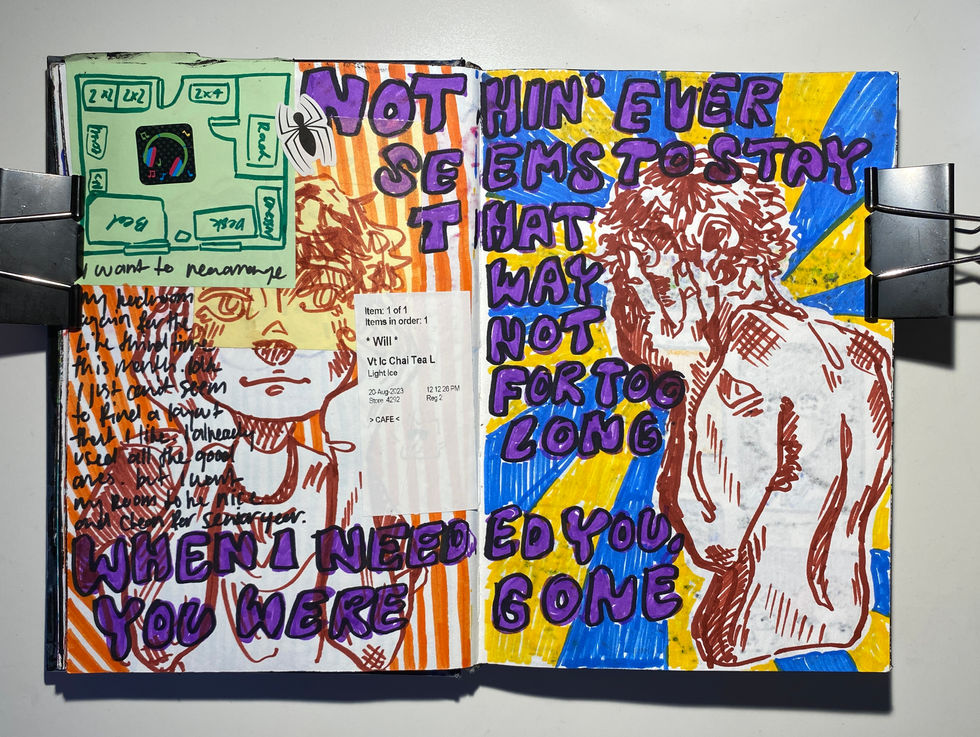 2x2 2x2 2x4
Rack
Bed
Desk
I want to rearrange
my bedroom
again for the
like third time
this month. but
I just can't seem
to find a layout
that I like. I already
used all the good
ones. but I want
my room to be nice
and clean for senior year.
Item: 1 of 1
Items in order: 1
* Will *
Vt Ic Chai Tea L
Light Ice
20-Aug-2023 12:12:28 PM
Store 4292 Reg 2
> CAFE <
NOTHIN' EVER
SEEMS TO STAY
THAT
WAY
NOT
FOR TOO
LONG
WHEN I NEEDED YOU,
YOU WERE GONE